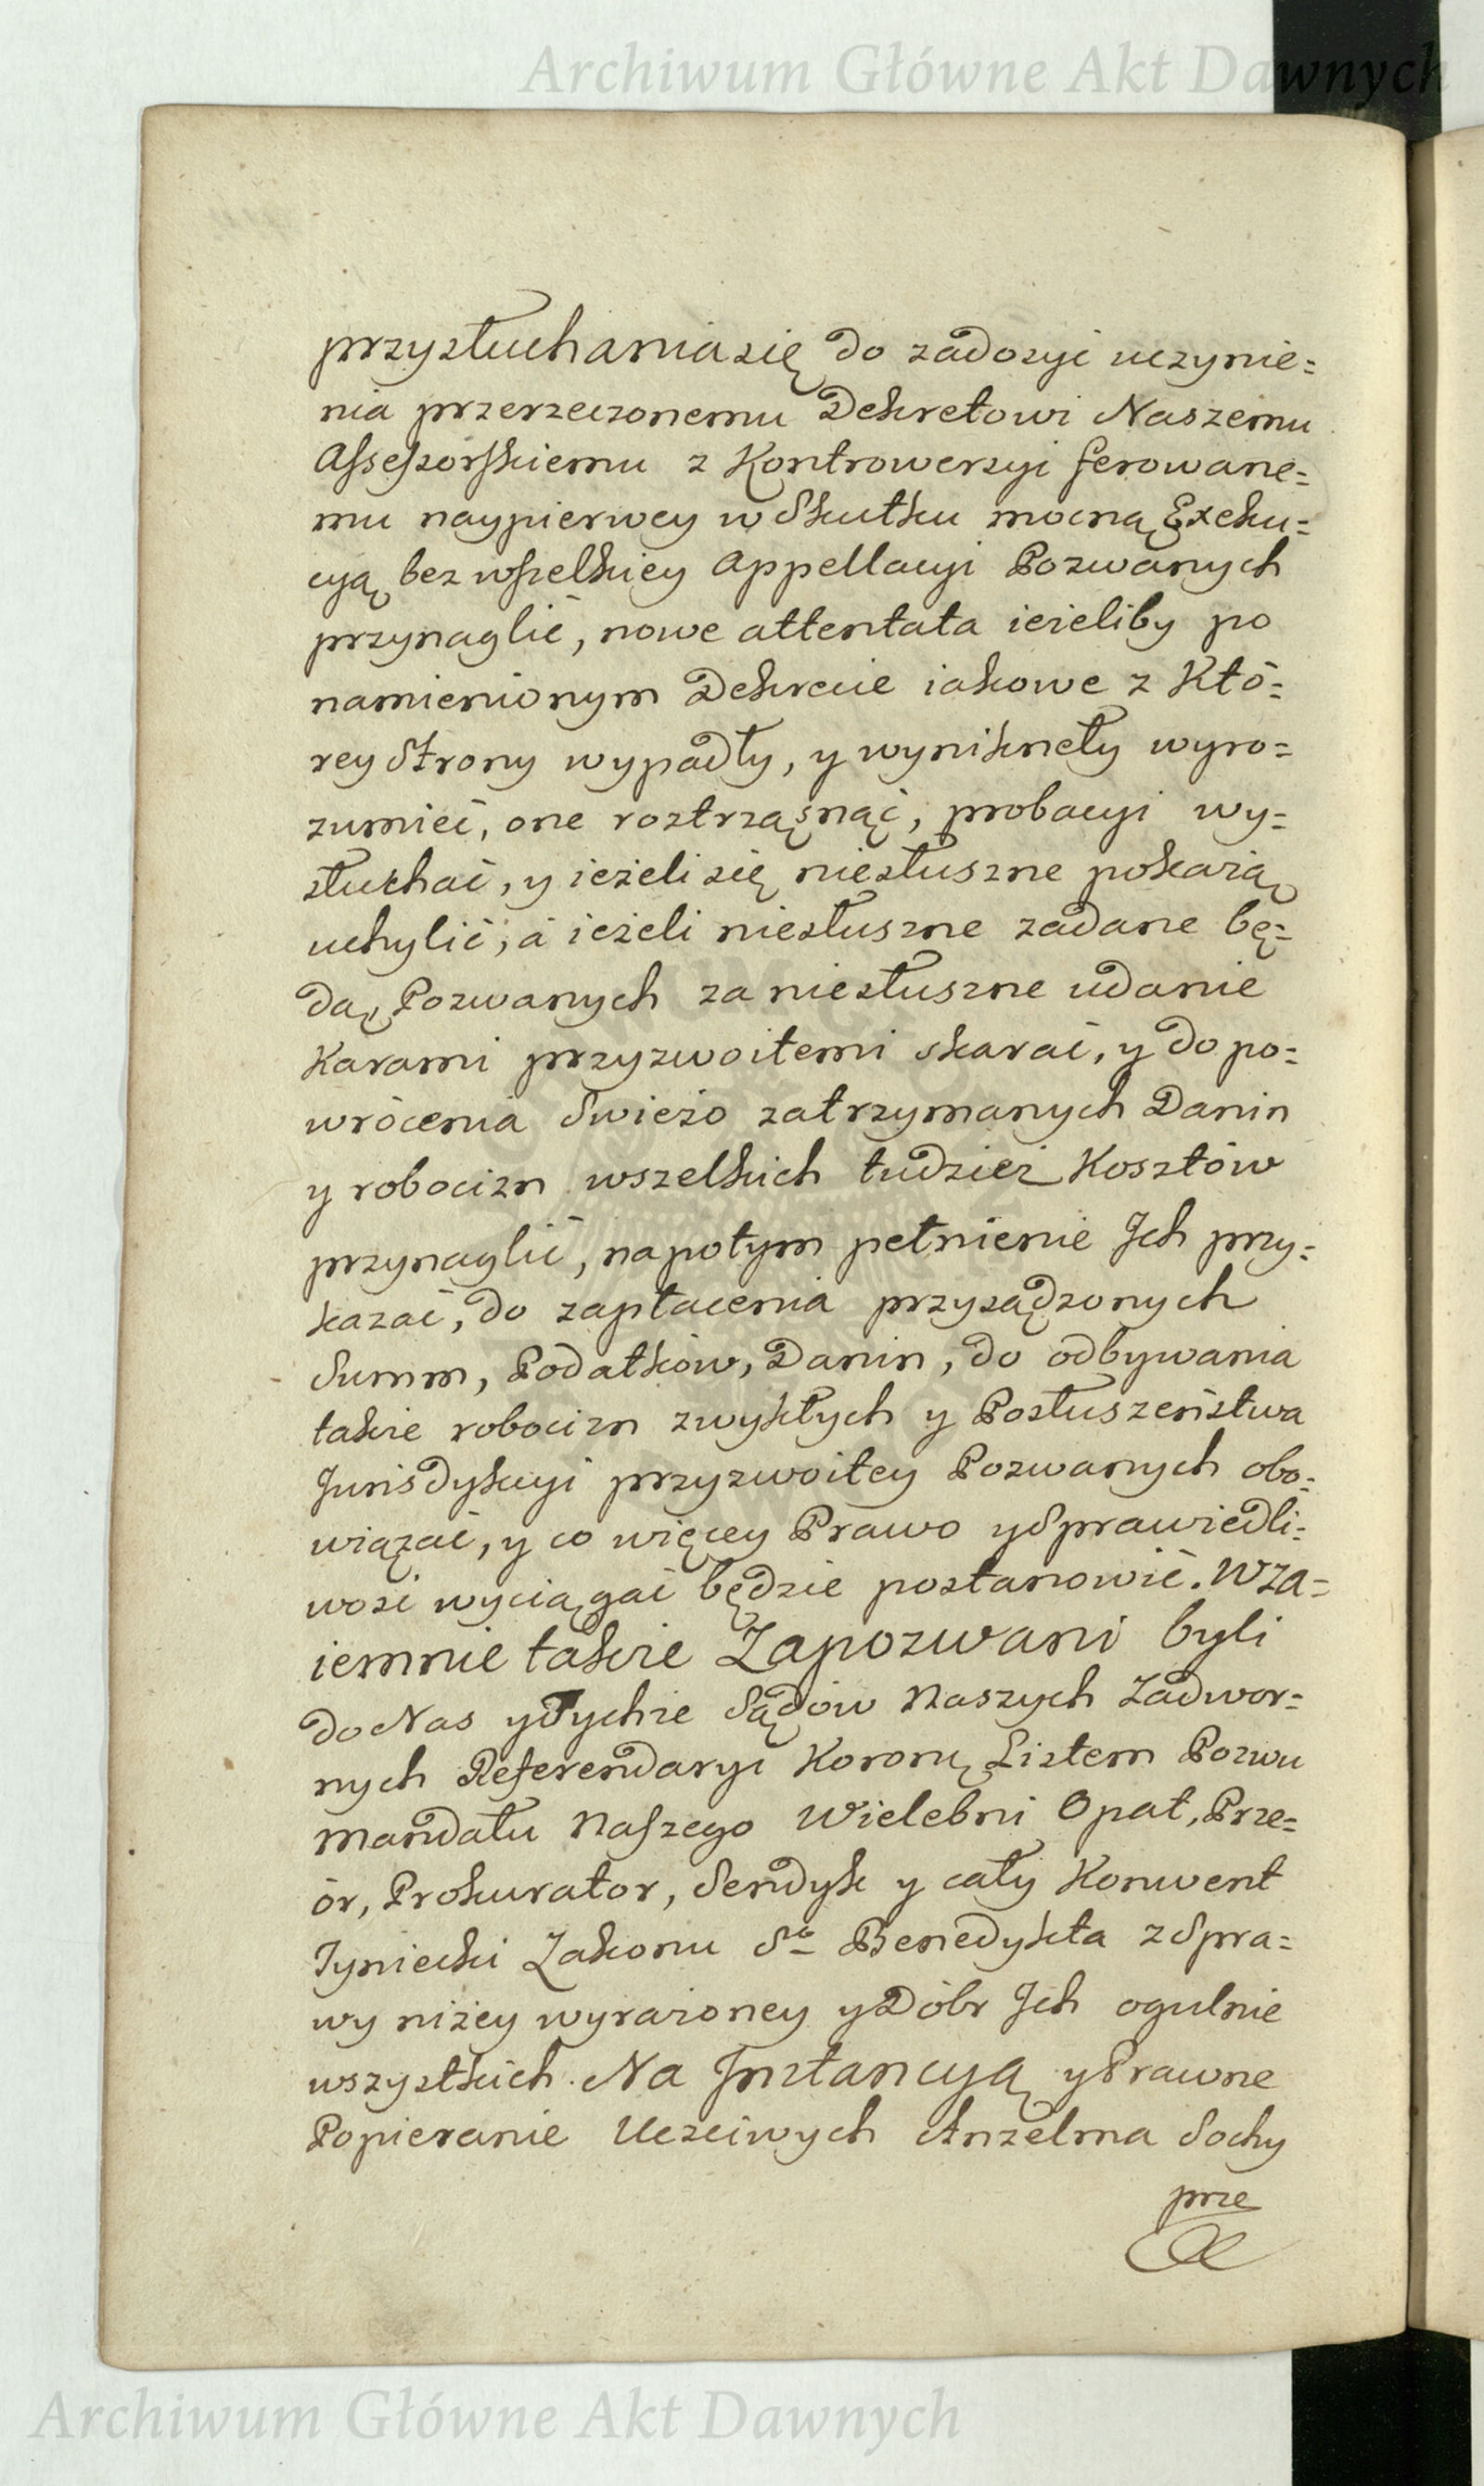 Archiwum Główne Akt Dawnych
przysłuchania się do zadosyć uczynie=
nia przerzeczonemu Dekretowi Naszemu
Assessorskiemu z Kontrowersyi ferowane=
mu naypierwey w Skutku mocną Exeku=
cyą bez wszelkiey Appellacyi Pozwanych
przynaglić, nowe attentata ieżeliby po
namienionym Dekrecie iakowe z Któ=
rey Strony wypadły, y wyniknęły wyro=
zumieć, one roztrząsnąć, probacyi wy=
słuchać, y ieżeli się niesłuszne pokażą
uchylić, a ieżeli niesłuszne zadane bę=
dą, Pozwanych za niesłuszne udanie
Karami przyzwoitemi skarać, y do po=
wrócenia Swieżo zatrzymanych Danin
y robocizn wszelkich tudzież Kosztów
przynaglić, napotym pełnienie Ich przy=
kazać, do zapłacenia przysądzonych
Summ, Podatków, Danin, do odbywania
także robocizn zwykłych y Posłuszeństwa
Jurisdykcyi przyzwoitey Pozwanych obo=
wiązać, y co więcey Prawo y Sprawiedli=
wość wyciągać będzie postanowić. Wza=
iemnie także Zapozwani byli
do Nas y Tychże Sądów Naszych Zadwor=
nych Referendaryi Koronn. Listem Pozwu
Mandatu Naszego Wielebni Opat, Prze=
ór, Prokurator, Sendyk y cały Konwent
Tyniecki Zakonu Sgo Benedykta z Spra=
wy niżey wyrażoney y Dóbr Ich ogulnie
wszystkich. Na Instancyą y Prawne
Popieranie Uczciwych Anzelma Sochy
prze
Archiwum Główne Akt Dawnych